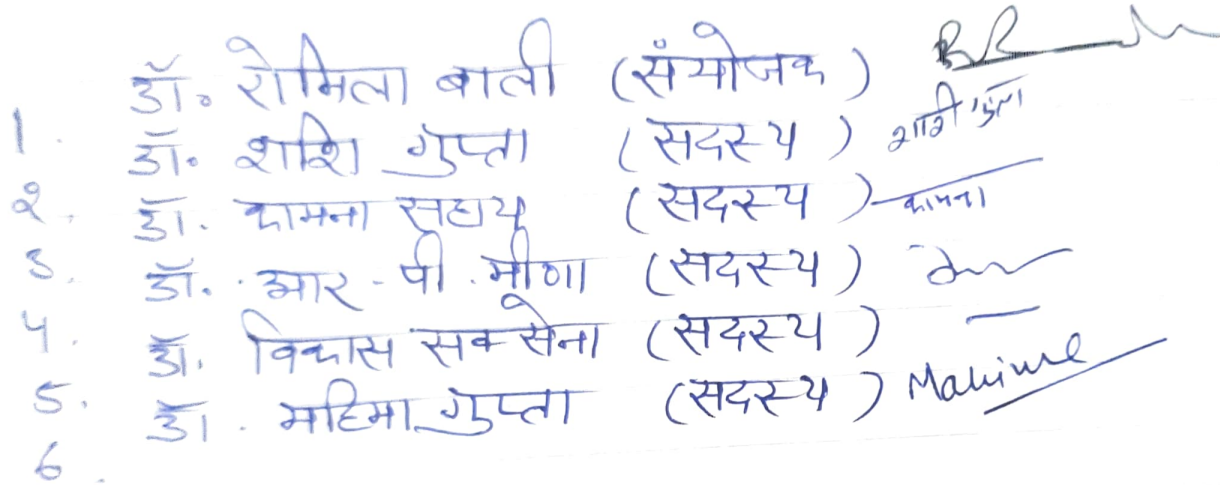 1. डॉ. रोमिला बाली (संयोजक)
2. डॉ. शशि गुप्ता (सदस्य) शशि गुप्ता
3. डॉ. कामना सहाय (सदस्य) कामना
4. डॉ. आर. पी. मीणा (सदस्य)
5. डॉ. विकास सक्सेना (सदस्य) —
6. डॉ. महिमा गुप्ता (सदस्य) Mahima